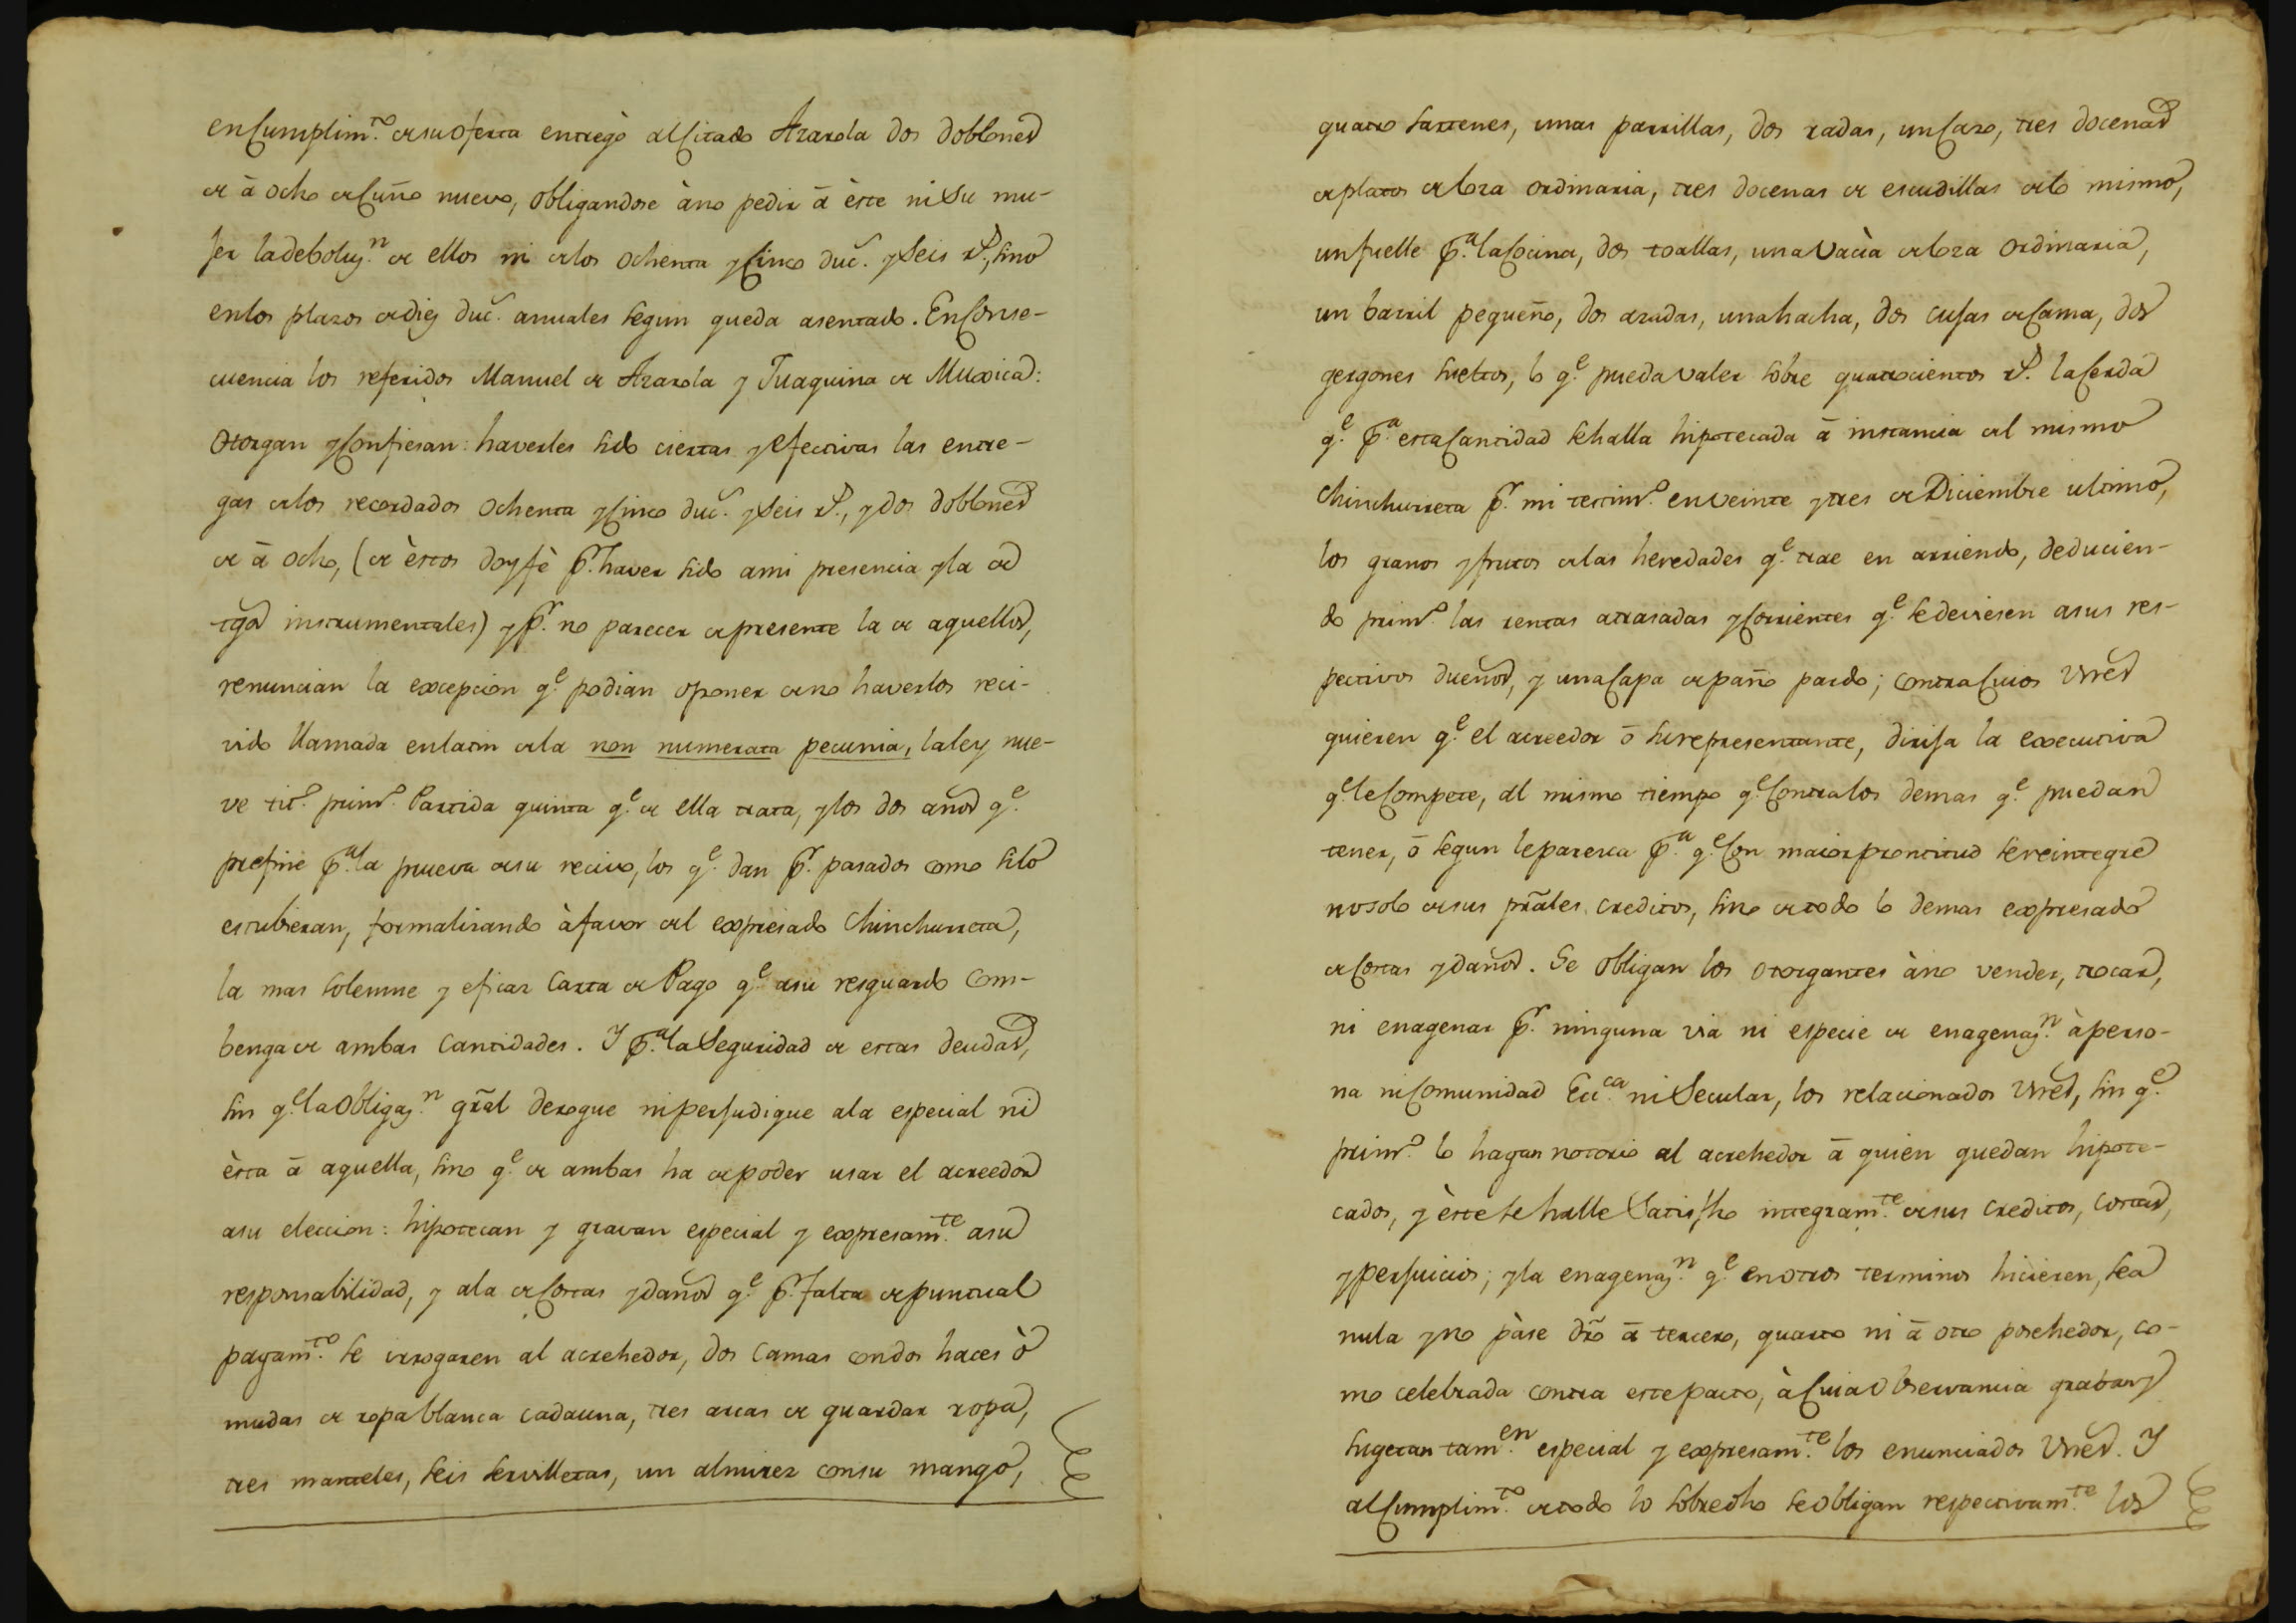 en Cumplim.to de su oferta entregò al Citado Azarola dos doblones
de â ocho de Cuño nuevo, obligandose àno pedir â èste ni su mu-
jer la deboluz.n de ellos ni de los ochenta y Cinco duc.s y Seis r.s, sino
en los plazos de diez duc.s anuales segun queda asentado. En Conse-
cuencia los referidos Manuel de Azarola y Juaquina de Muxica:
Otorgan y Confiesan: haverles sido ciertas y efectivas las entre-
gas de los recordados ochenta y Cinco duc.s y Seis r.s, y dos doblones
de â ocho, (de èstos doy fè p.r haver sido ami presencia y la de
tgos instrumentales) y p.r no parecer de presente la de aquellos,
renuncian la excepcion q.e podian oponer de no haverlos reci-
vido llamada en latin de la non numerata pecunia, la ley nue-
ve tit.o prim.o Partida quinta q.e de ella trata, y los dos años q.e
prefine p.a la prueva de su recivo, los q.e dan p.r pasados como si lo
estubieran, formalizando àfavor del expresado Chinchurreta,
la mas solemne y eficaz Carta de Pago q.e asu resguardo Com-
benga de ambas Cantidades. Y p.a la Seguridad de estas deudas,
sin q.e la Obligaz.n gr̃al derogue ni perjudique ala especial ni
èsta â aquella, sino q.e de ambas ha de poder usar el acreedor
asu eleccion: hipotecan y gravan especial y expresam.te asu
responsabilidad, y ala de Costas y daños q.e p.r falta de puntual
pagam.to se irrogaren al acrehedor, dos Camas con dos haces ò
mudas de ropa blanca cada una, tres arcas de guardar ropa,
tres manteles, seis servilletas, un almirez con su mango,
quatro sartenes, unas parrillas, dos radas, un Cazo, tres docenas
de platos de loza ordinaria, tres docenas de escudillas de lo mismo,
un fuelle p.a la Cocina, dos toallas, una Vacìa de loza ordinaria,
un barril pequeño, dos azadas, una hacha, dos cujas de Cama, dos
gergones sueltos, lo q.e pueda valer sobre quatrocientos r.s la Cerda
q.e p.a esta Cantidad se halla hipotecada â instancia del mismo
Chinchurreta p.r mi testim.o en veinte y tres de Diciembre ultimo,
los granos y frutos de las heredades q.e trae en arriendo, deducien-
do prim.o las rentas atrasadas y Corrientes q.e se deviesen asus res-
pectivos dueños, y una Capa de paño pardo; contra Cuios Vnes
quieren q.e el acreedor ô su representante, dirija la executiva
q.e le Compete, al mismo tiempo q.e Contra los demas q.e puedan
tener, ô segun le parezca p.a q.e Con maior prontitud se reintegre
no solo de sus prãles creditos, sino de todo lo demas expresado
de Costas y daños. Se obligan los otorgantes àno vender, trocar,
ni enagenar p.r ninguna via ni especie de enagenaz.n àperso-
na ni Comunidad Ecc.ca ni Secular, los relacionados Vnes, sin q.e
prim.o lo hagan notorio al acrehedor â quien quedan hipote-
cados, y èste se halle Satisfho integram.te de sus Creditos, Costas,
y perjuicios; y la enagenaz.n q.e en otros terminos hicieren, sea
nula y no pàse dr̃o â tercero, quarto ni â otro posehedor, co-
mo celebrada contra este pacto, à Cuia observancia graban y
sugetan tam.en especial y expresam.te los enunciados Vnes. Y
al Cumplim.to de todo lo sobredho se obligan respectivam.te los